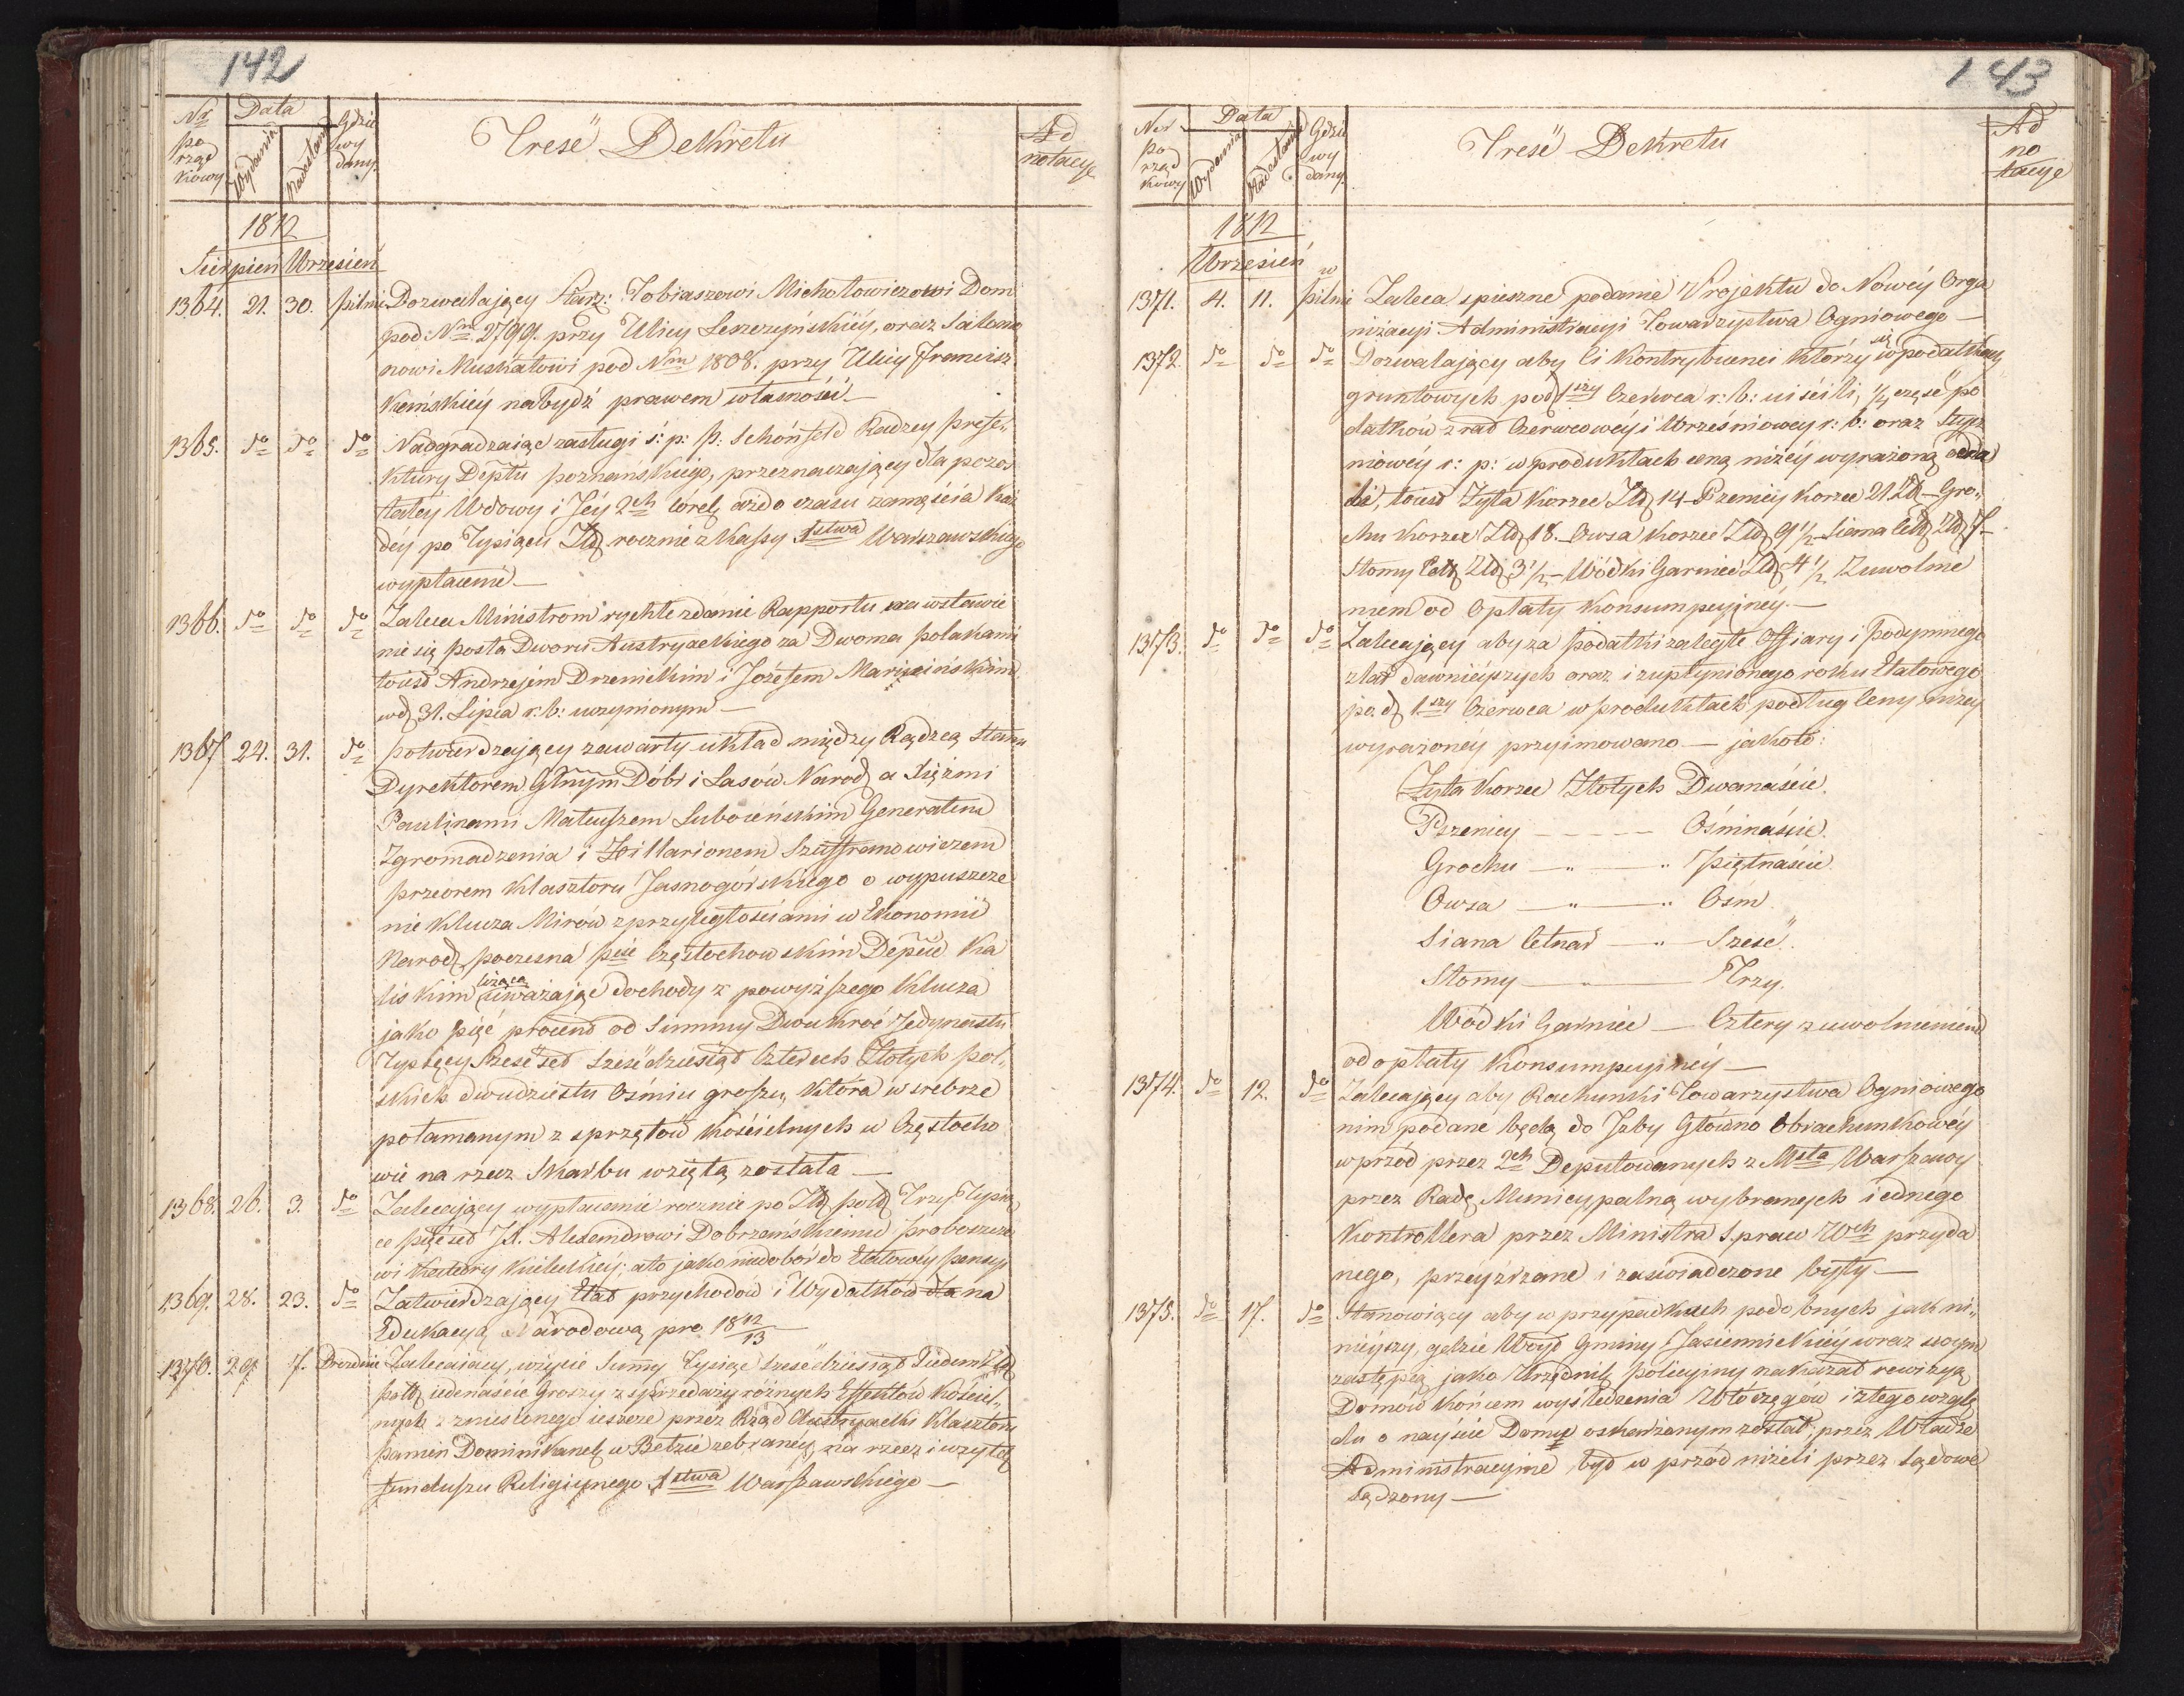 142
Nr porządkowy | Data Wydania | Nadesłania | Gdzie wydany | Treść Dekretu | Adnotacye
1812
Sierpień Wrzesień
1364. 21. 30. pilni Dozwalający Starz: Tobiaszowi Michołowiczowi Dom
pod Nrm 2799. przy Ulicy Leszczyńskiéy, oraz Salomo
nowi Muskatowi pod Nrm 1808. przy Ulicy Francisz
kańskiéy nabydź prawem własności. —
1365. do do do Nadgradzaiąc zasługi ś: p: P. Schönfeld Radzcy Prefe-
ktury Deptu Poznańskiego, przeznaczający dla pozos
tałéy Wdowy i Jéy 2ch córek aż do czasu zamęścia każ
déy po Tysiącu Złł rocznie z Kassy Xstwa Warszawskiego
wypłacenie —
1366. do do do Zaleca Ministrom rychłe zdanie Rapportu na wstawie
nie się Posła Dworu Austryackiego za Dwoma Polakami
toiest Andrzejem Drzenickim i Józefem Marcińskim
wd 31. Lipca r: b: uczynionym —
1367 24. 31. do Potwierdzający zawarty układ między Radzcą Stanu
Dyrektorem Głnym Dóbr i Lasów Narod a Xiężmi
Paulinami Mateuszem Lubocińskim Generałem
Zgromadzenia i Hillarionem Szuffranowiczem
Przeorem Klasztoru Jasnogórskiego o wypuszcze
nie Klucza Mirów z przyległościami w Ekonomii
Narod Poczesna Pcie Częstochowskim Depcie Ka
liskim licząca uważając dochody z powyższego Klucza
jako pięć procent od Summy Dwukroć Jedynastu
Tysięcy Sześćset sześćdziesiąt Czterech Złotych pol-
skich dwudziestu Ośmiu groszy, która w srebrze
połamanym z sprzętów kościelnych w Częstocho
wie na rzecz Skarbu wziętą została —
1368. 26. 3. do Zalecający wypłacanie rocznie po Złł Pol Trzy Tysią
ce pięćset JX. Alexandrowi Dobrzańskiemu Proboszczo
wi Katedry Kieleckiéy; a to jako niedobór do Etatowéy Pensyi
1369. 28. 23. do Zatwierdzający Etat przychodów i Wydatków na
Edukacyą Narodową pro 18 12/13
1370. 29. 7. Dreźnie Zalecający, użycie Sumy Tysiąc Sześćdziesiąt Siedem Złł
Pol iedenaście Groszy z sprzedaży różnych Effektów Kościel-
nych z zniesionego ieszcze przez Rząd Austryacki Klasztoru
Panien Dominikanek w Bełzie zebranéy, na rzecz i użytek
funduszu Religiynego Xstwa Warszawskiego —
143
Ner porządkowy | Data Wydania | Nadesłania | Gdzie wydany | Treść Dekretu | Adnotacye
1812
Wrzesień
1371. 4. 11. w pilni Zaleca spieszne podanie Projektu do Nowéy Orga
nizacyi Administracyi Towarzystwa Ogniowego —
1372. do do do Dozwalający aby Ci Kontrybuenci którzy się w podatkach
gruntowych pod 1szy Czerwca r: b: uiścili, 1/4 część po
datków z rat Czerwcowéy i Wrześniowey r: b: oraz Stycz
niowéy r: p: w produktach ceną niżéy wyrażoną odda
li, toiest Żyta Korzec Złł 14 – Pszenicy Korzec 21 Złł – Gro-
chu Korzec Złł 18. – Owsa Korzec Złł 9 1/2 – Siana Cetł Złł 7. –
Słomy Cetł Złł 3 1/2 – Wódki Garniec Złł 4 1/2 Zuwolnie
niem od Opłaty Konsumpcyjnéy. —
1373. do do do Zalecający aby za Podatki zaległe Offiary i Podymnego
z lat dawnieyszych oraz i zupłynionego roku Etatowego
po d 1szy Czerwca w produktach podług Ceny niżey
wyrażonéy przyimowano — jakoto:
Żyta Korzec Złotych Dwanaście.
Pszenicy — — — — Ośmnaście.
Grochu — „ — „ Piętnaście.
Owsa — „ — „ Ośm.
Siana Cetnar — „ Sześć.
Słomy — — Trzy.
Wódki Garniec — Cztery zuwolnieniem
od opłaty Konsumpcyjnéy —
1374. do 12. do Zalecający aby Rachunki Towarzystwa Ogniowego
nim podane będą do Izby Główno Obrachunkowéy
wprzód przez 2ch Deputowanych z Msta Warszawy
przez Radę Municypalną wybranych i ednego
Kontrollera przez Ministra Spraw Wch przyda
nego, przeyźrzane i zaświadczone były —
1375. do 17. do Stanowiący aby w przypadkach podobnych jak ni-
nieyszy, gdzie Woyt Gminy Jasiennickiéy wraz swym
zastępcą jako Urzędnik Policyiny nakazał rewizyą
Domów końcem wyśledzenia Włóczęgów i z tego wzglę
du o nayście Domu oskarżonym został, przez Władze
Administracyine był w przód niżeli przez Sądowe
sądzony —